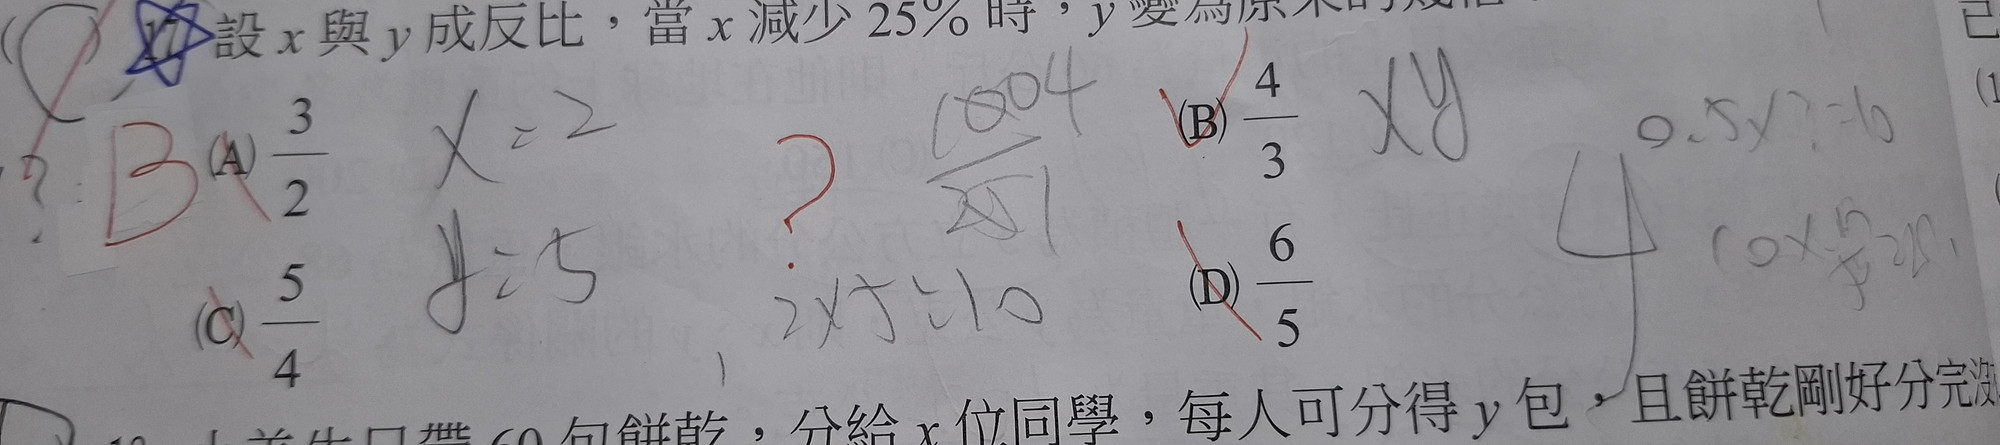 17. 設 x 與 y 成反比，當 x 減少 25% 時，y 變為原來的幾倍？
B (A) 3/2 x=2 ? 1004/251 (B) 4/3 xy 0.5x?=10
? y=5 2x5=10 (D) 6/5 4
(C) 5/4
60 包餅乾，分給 x 位同學，每人可分得 y 包，且餅乾剛好分完沒